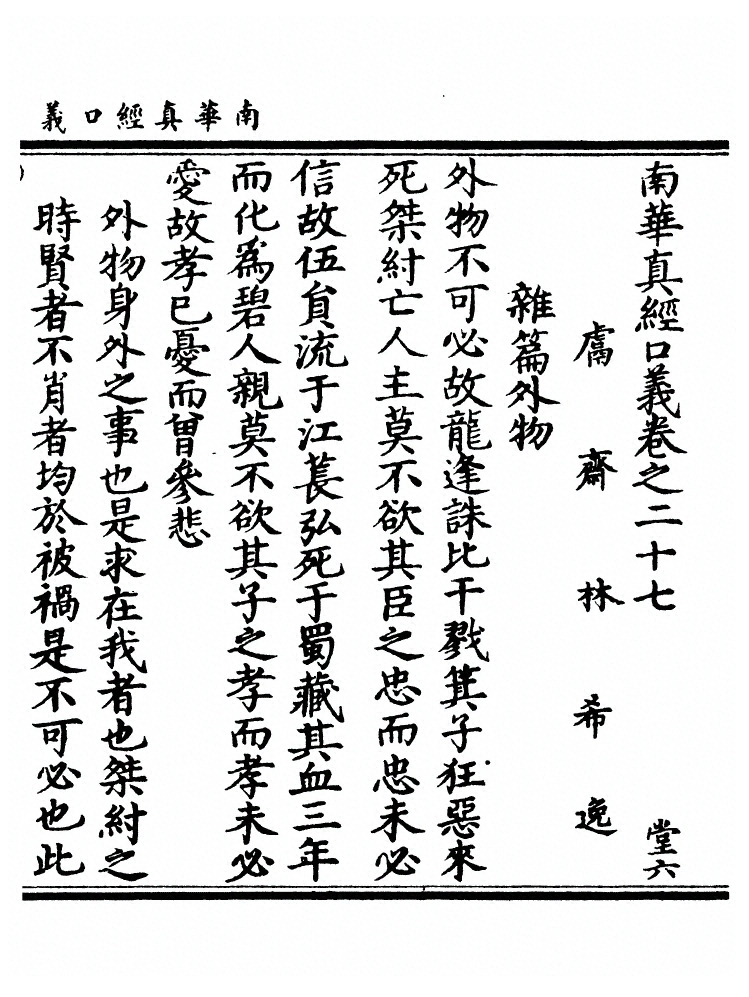 南華真經口義
南華真經口義卷之二十七 堂六
鬳齋林希逸
雜篇外物
外物不可必故龍逢誅比干戮箕子狂惡來
死桀紂亡人主莫不欲其臣之忠而忠未必
信故伍負流于江萇弘死于蜀藏其血三年
而化為碧人親莫不欲其子之孝而孝未必
愛故孝已憂而曾參悲
外物身外之事也是求在我者也桀紂之
時賢者不肖者均於被禍是不可必也此